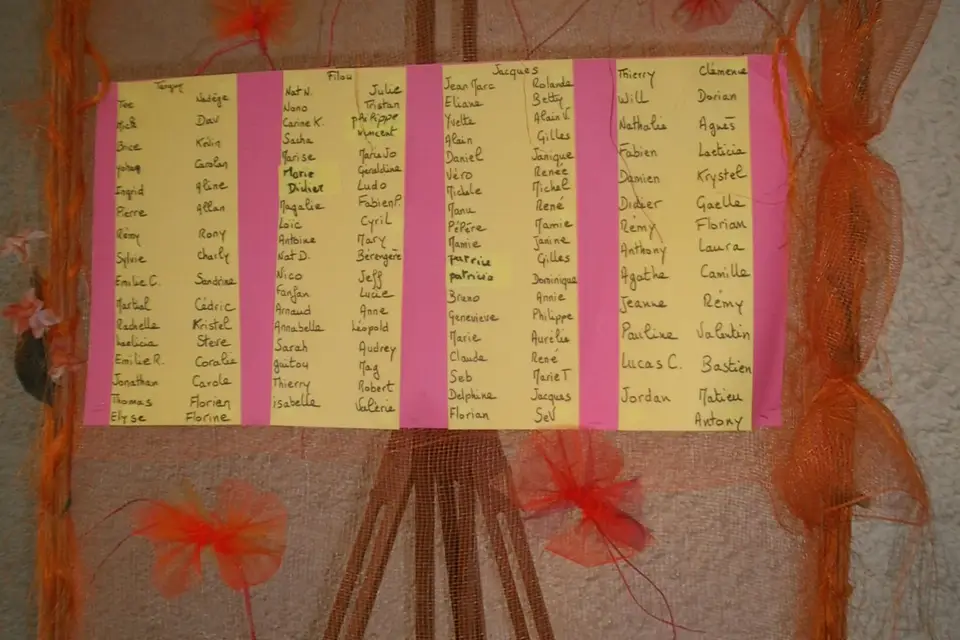 Tanguy
Joe Nadège
Mick Dav
Brice Kévin
Yohan Carolen
Ingrid Aline
Pierre Allan
Rémy Rony
Sylvie Charly
Emilie C. Sandrine
Martial Cédric
Rachelle Kristel
Laeticia Steve
Emilie R. Coralie
Jonathan Carole
Thomas Florien
Elyse Florine
Filou
Nat N. Julie
Nono Tristan
Carine K. philippe
vincent
Sacha
Marise Marie Jo
Marie Géraldine
Didier Ludo
Magalie Fabien P.
Loïc Cyril
Antoine Mary
Nat D. Bérengère
Nico Jeff
Fanfan Lucie
Arnaud Anne
Annabelle Léopold
Sarah Audrey
Guitou Mag
Thierry Robert
isabelle Valérie
Jacques
Jean Marc Rolande
Eliane Betty
Yvette Alain V
Alain Gilles
Daniel Janique
Véro Renée
Michele Michel
Manu René
Pépère Mamie
Mamie Janine
patrice Gilles
patricia Dominique
Breno Annie
Genevieve Philippe
Marie Aurélie
Claude René
Seb Marie T
Delphine Jacques
Florian Sev
Thierry Clémence
Will Dorian
Nathalie Agnès
Fabien Laeticia
Damien Krystel
Didier Gaelle
Rémy Florian
Anthony Laura
Agathe Camille
Jeanne Rémy
Pauline Valentin
Lucas C. Bastien
Jordan Matieu
Antony